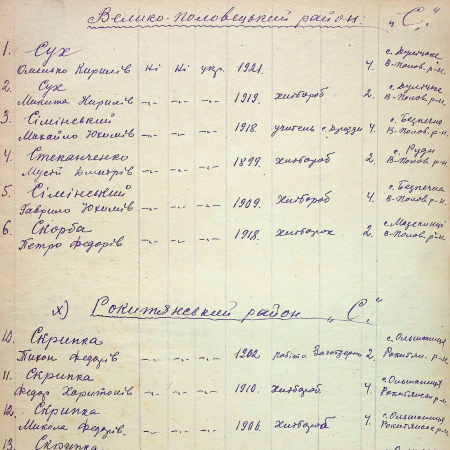 Велико-Половецький район. "С."
1. Сух
Омелько Кирилів Ні Ні укр. 1921. 4. с. Дулицьке В-Полов. р-н.
2. Сух
Микита Кирилів -„- -„- -„- 1919. хлібороб 2. с. Дулицьке В-Полов. р-н.
3. Сімінський
Михайло Юхимів -„- -„- -„- 1918. учитель с. 4. с. Безпечна В-Полов. р-н.
4. Степанченко
Мусій Дмитрів -„- -„- -„- 1899. хлібороб 2. с. Руди В-Полов. р-н.
5. Сімінський
Гаврило Юхимів -„- -„- -„- 1909. Хлібороб 4. с. Безпечна В-Полов. р-н.
6. Скорба
Петро Федорів -„- -„- -„- 1918. хлібороб 2. с. В-Полов. р-н.
х) Рокитянський район "С."
10. Скрипка
Тихон Федорів -„- -„- -„- 1902. 2. с. Ольшаниця Рокитян. р-н.
11. Скрипка
Федор Харитонів -„- -„- -„- 1910. Хлібороб 4. с. Ольшаниця р-н.
12. Скрипка
Микола Федорів. -„- -„- -„- 1906. Хлібороб 4. с. Ольшаниця р-н.
13. Скрипка